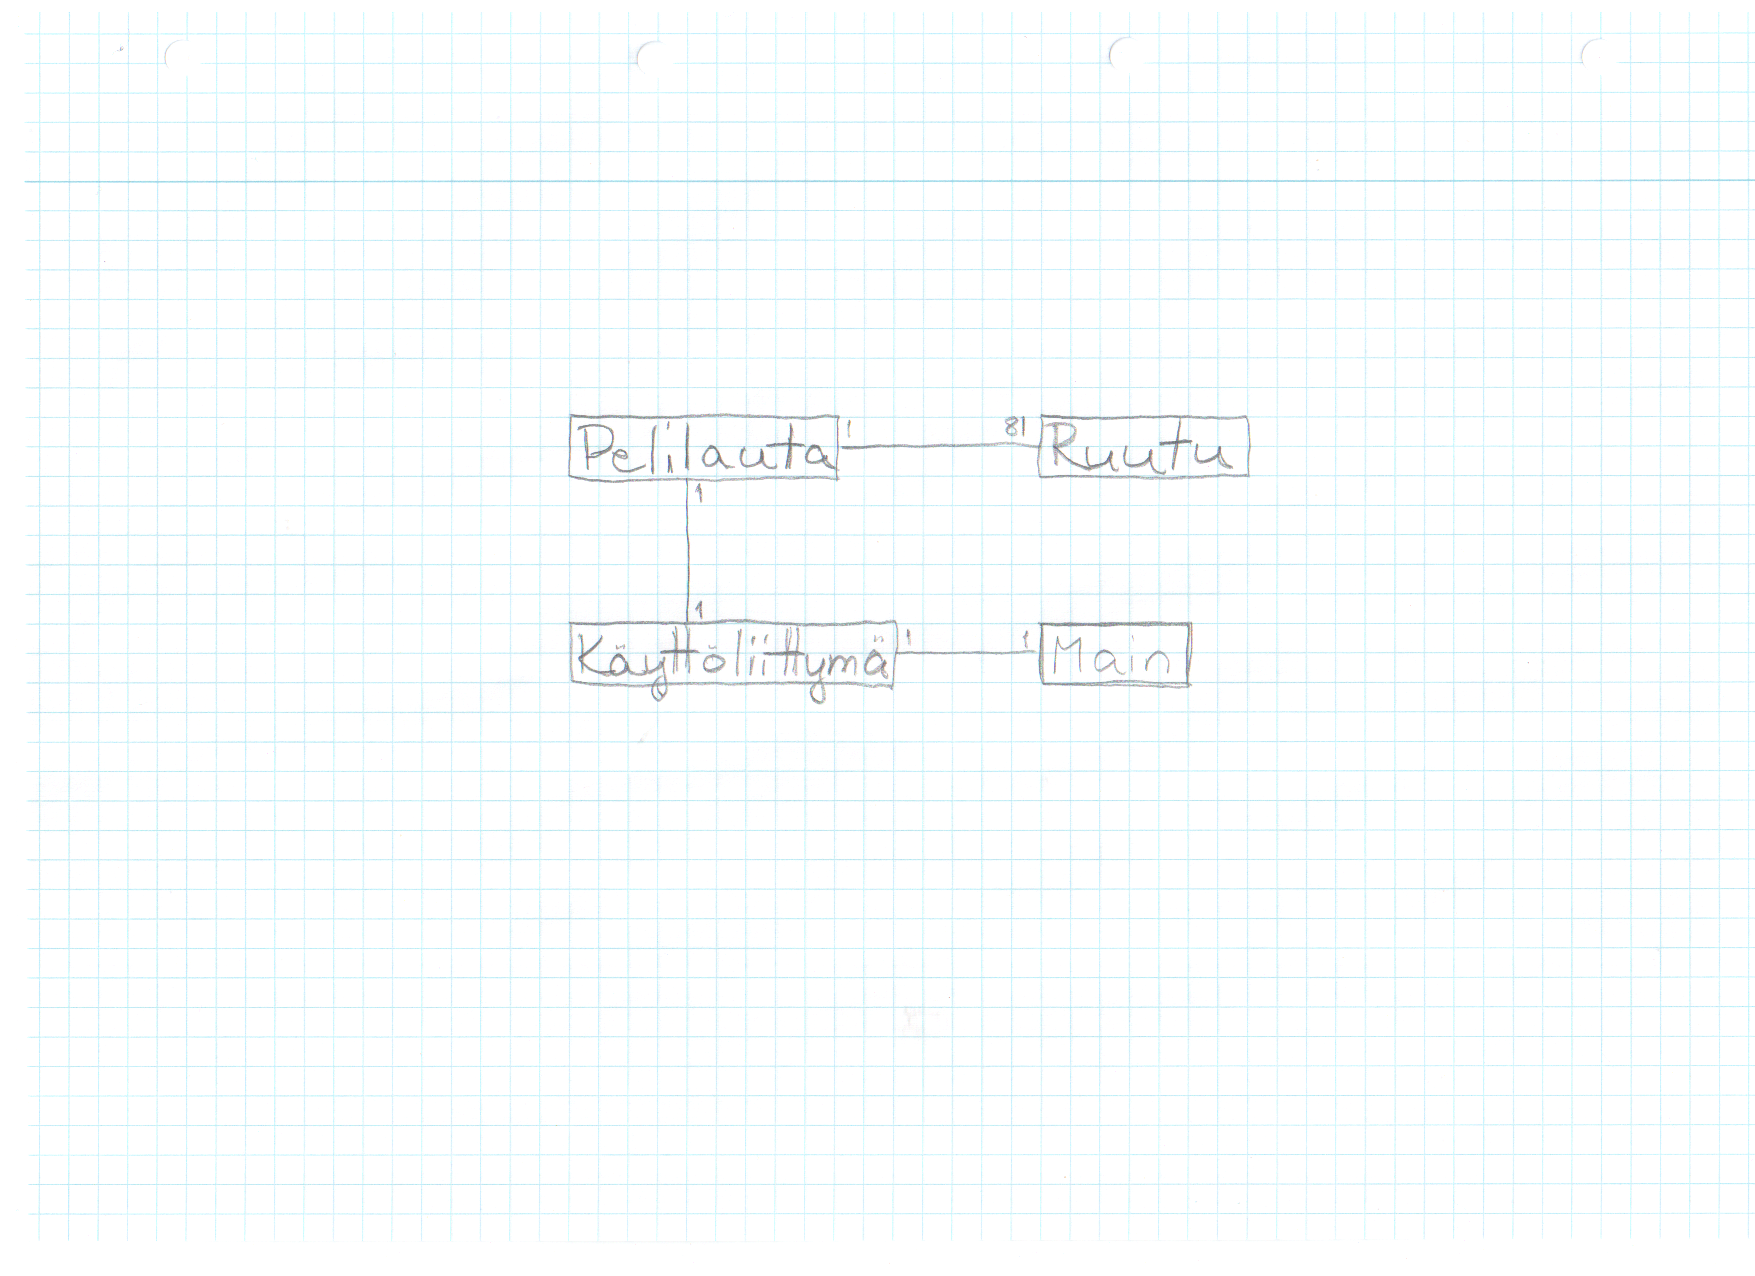 Pelilauta 1 81 Ruutu
1
1
Käyttöliittymä 1 1 Main